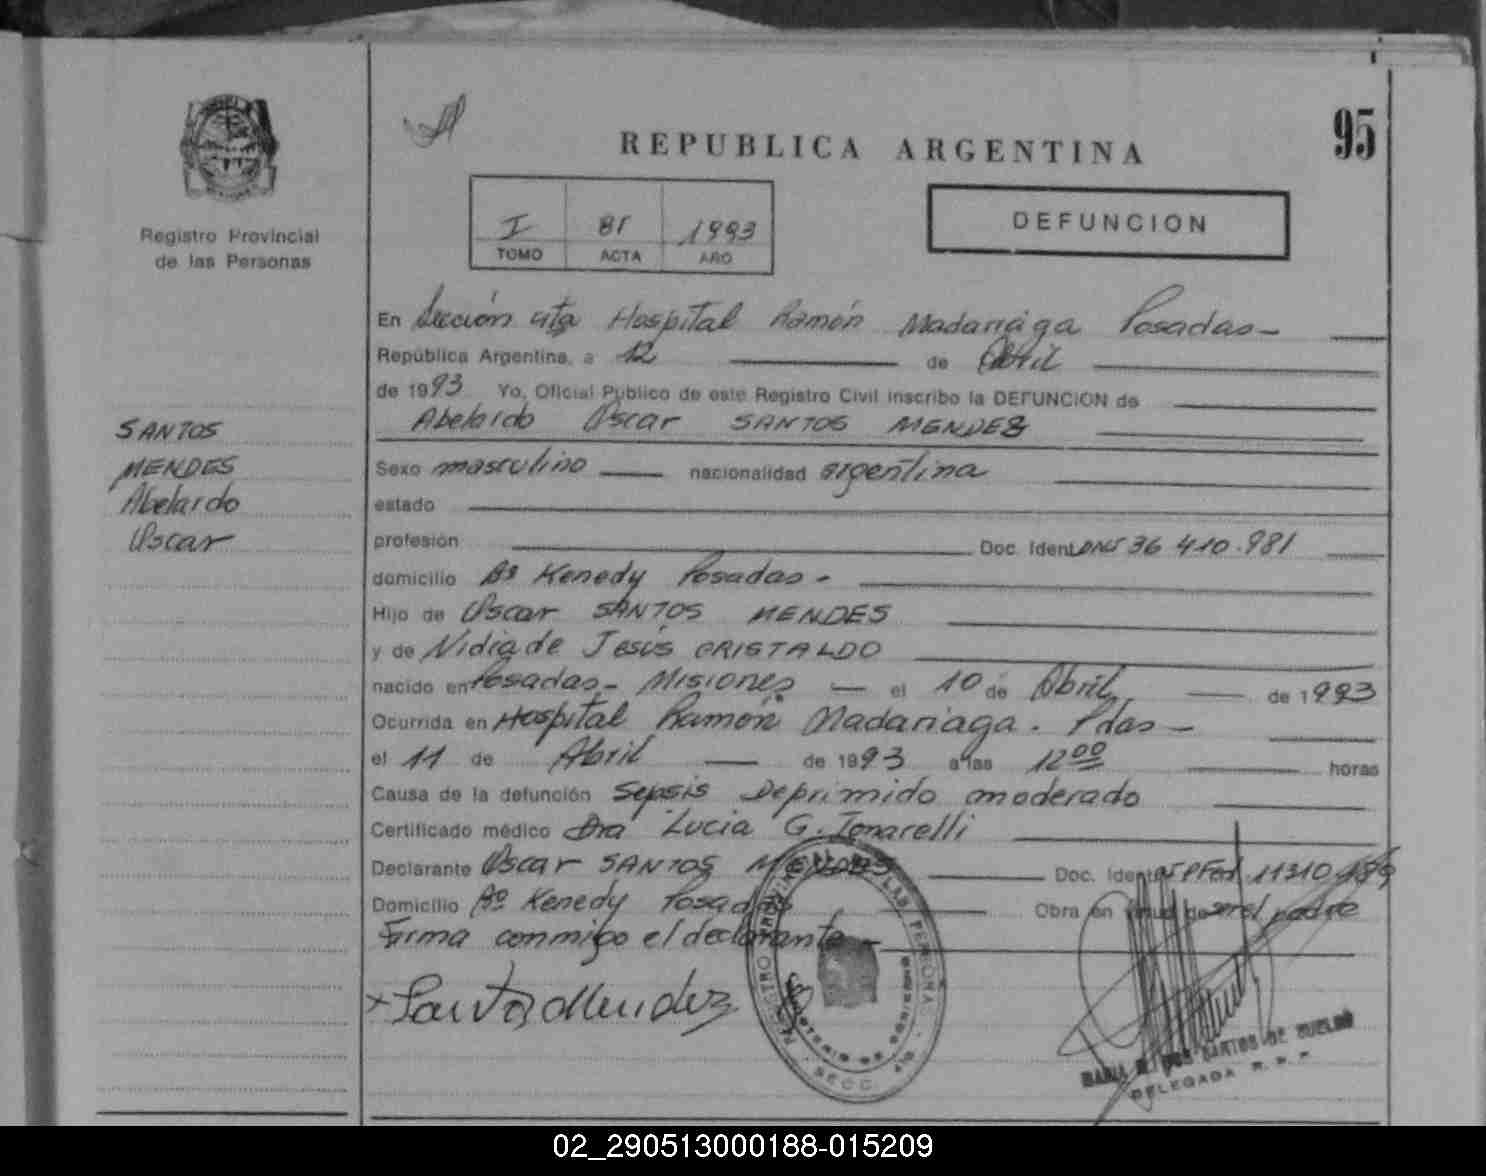 95
REPUBLICA ARGENTINA
I 81 1993
TOMO ACTA AÑO
DEFUNCION
Registro Provincial
de las Personas
SANTOS
MENDES
Abelardo
Oscar
En Sección 4ta Hospital Ramón Madariaga Posadas-
República Argentina, a 12 de Abril
de 1993 Yo, Oficial Público de este Registro Civil inscribo la DEFUNCION de
Abelardo Oscar SANTOS MENDES
Sexo masculino nacionalidad argentina
estado
profesión Doc. Ident. DNI 36 410.981
domicilio Bº Kenedy Posadas-
Hijo de Oscar SANTOS MENDES
y de Nidia de Jesús CRISTALDO
nacido en Posadas- Misiones el 10 de Abril de 1993
Ocurrida en Hospital Ramón Madariaga. Pdas-
el 11 de Abril de 1993 a las 12 00 horas
Causa de la defunción Sepsis Deprimido moderado
Certificado médico Dra Lucia G. Tonarelli
Declarante Oscar SANTOS MENDES Doc. Ident.
Domicilio Bº Kenedy Posadas Obra en virtud de ser el padre
Firma conmigo el declarante-
Santos Mendez
REGISTRO PROVINCIAL DE LAS PERSONAS
MINISTERIO DE GOBIERNO
SECC. 4ta
MARIA DOS SANTOS DE
DELEGADA R. P. P.
02_290513000188-015209